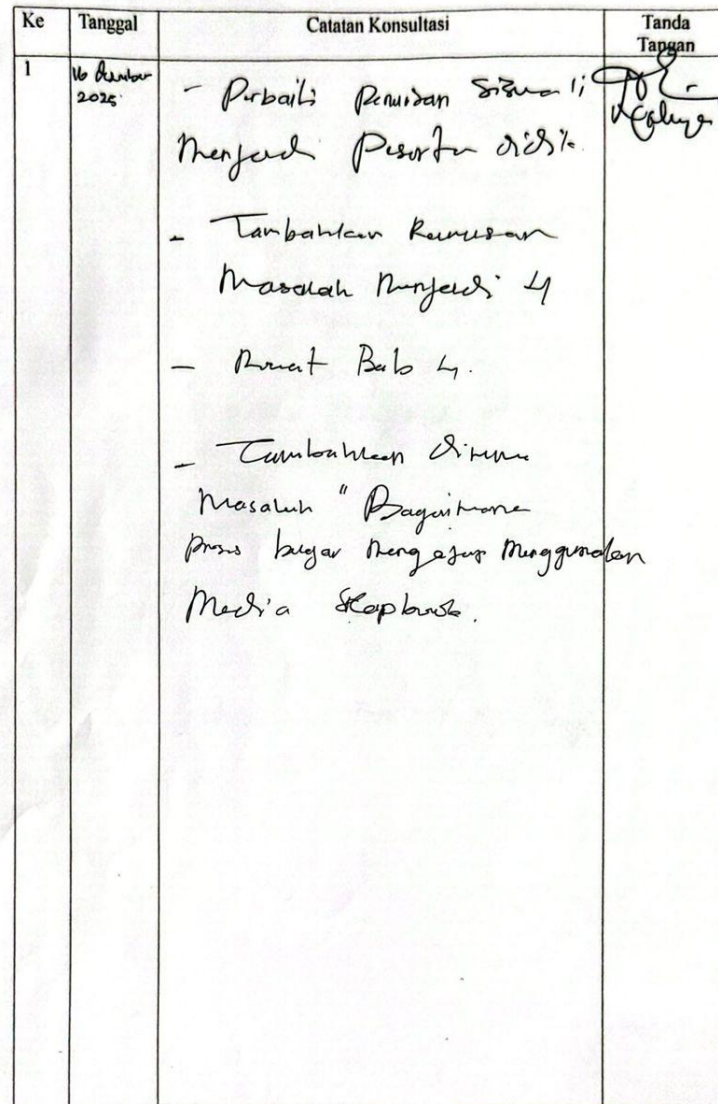 Ke Tanggal Catatan Konsultasi Tanda Tangan
1 16 Desember 2025
- Perbaiki Penulisan Siswa
menjadi Peserta didik
- Tambahkan Rumusan
Masalah Menjadi 4
- Bab 4.
- Tambahkan
Masalah " Bagaimana
proses belajar mengajar menggunakan
Media